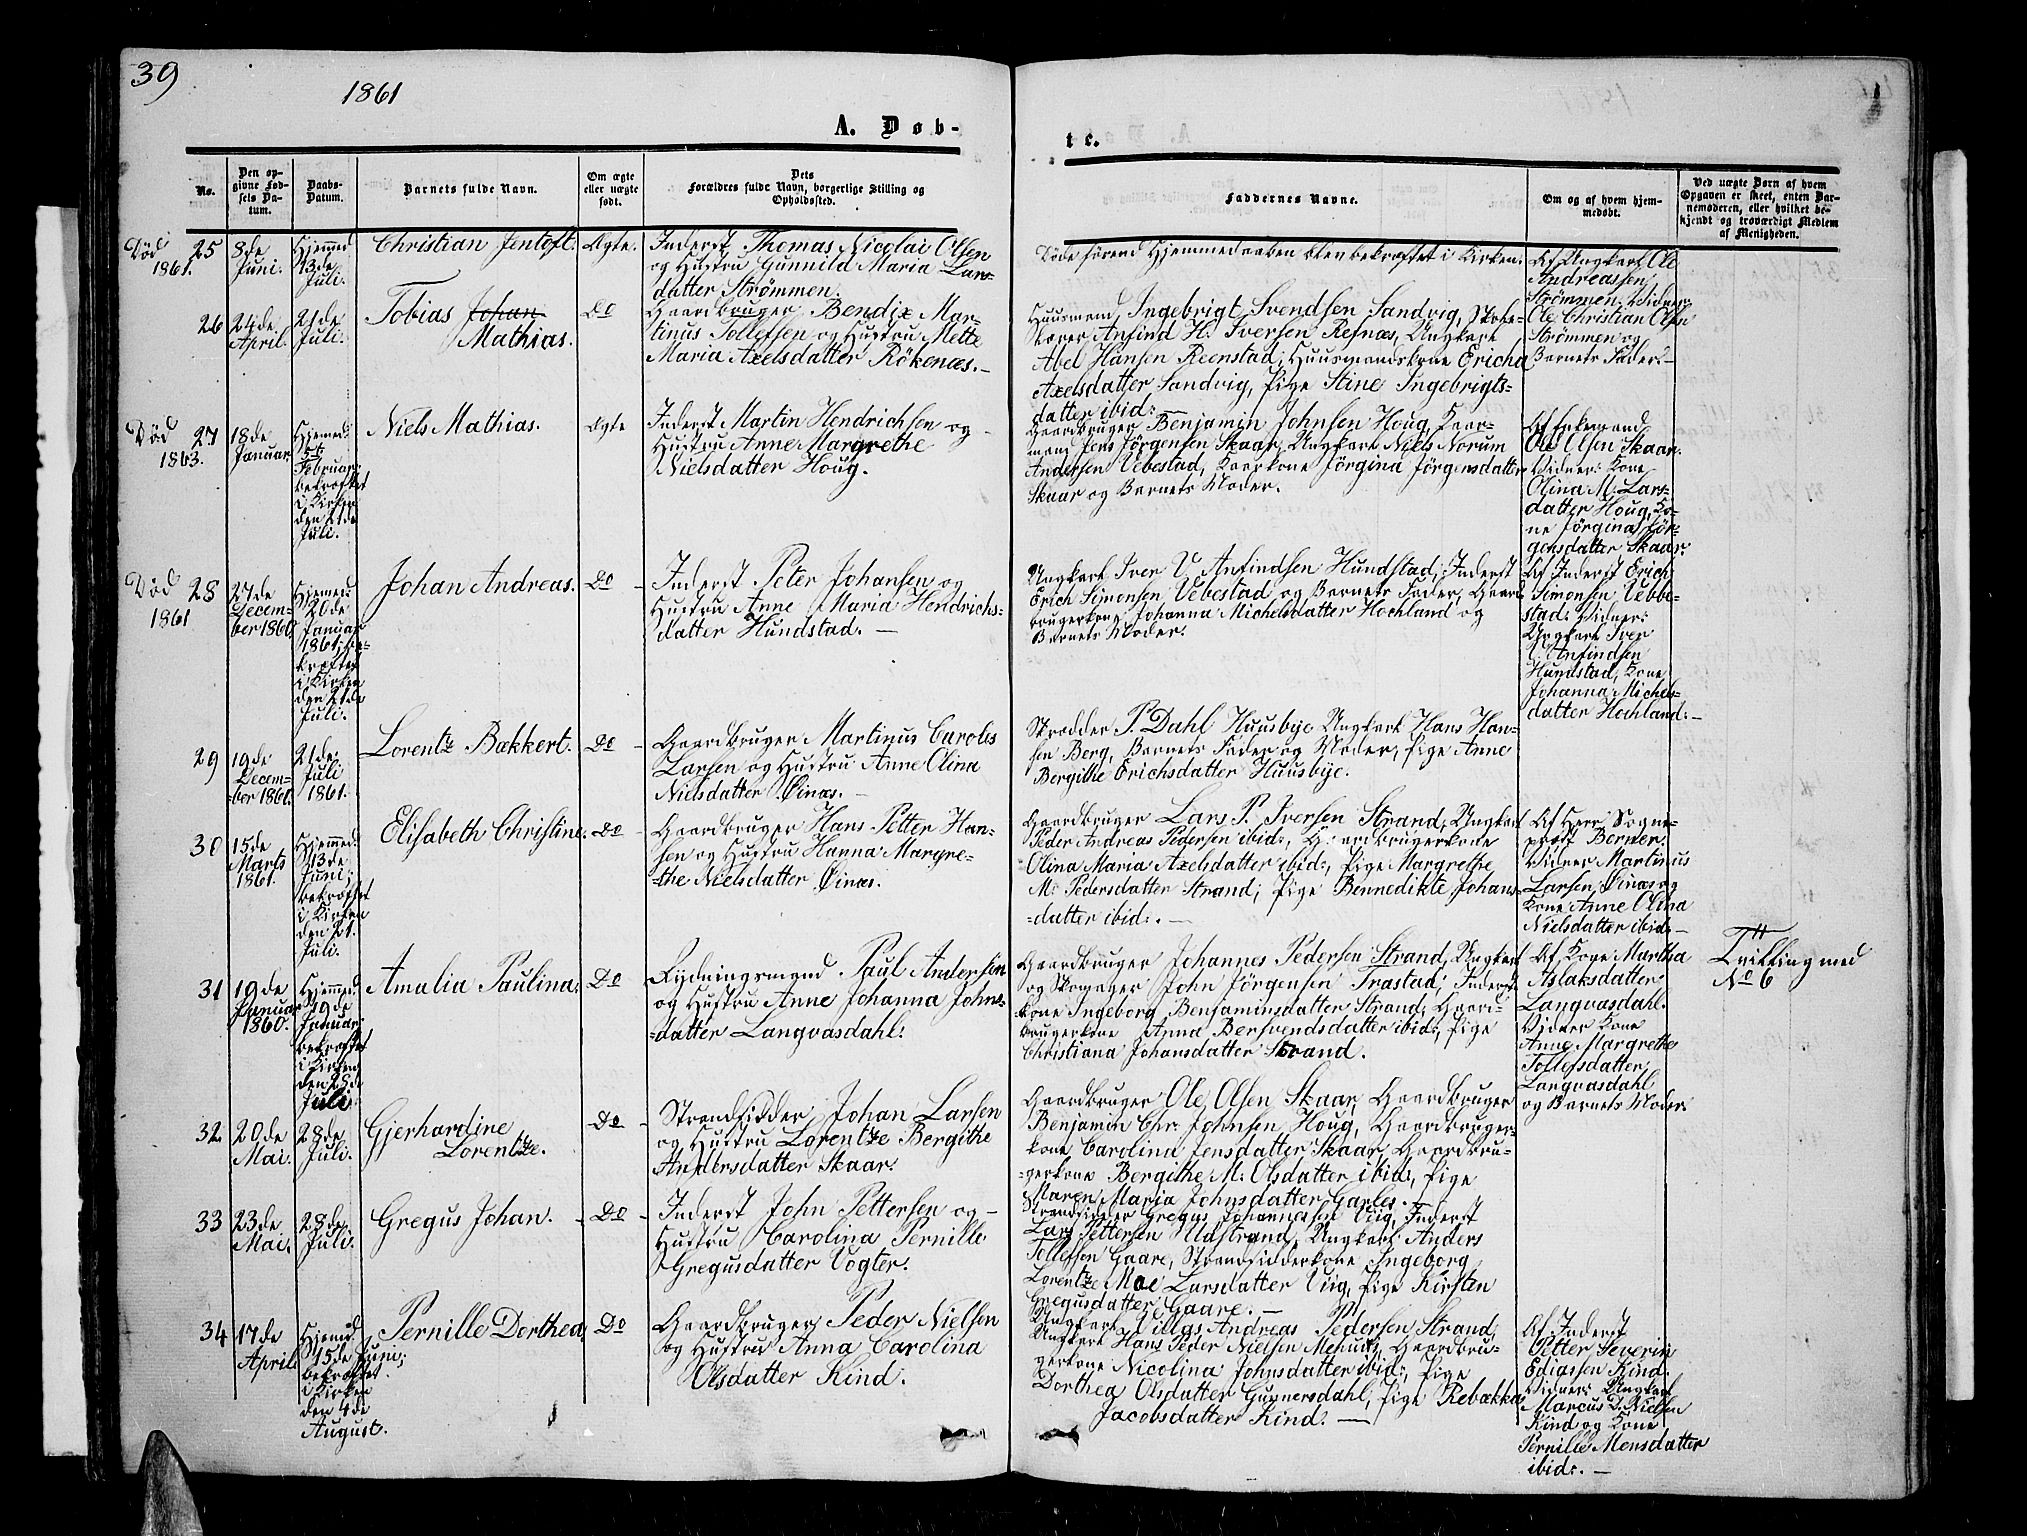 39
1861
A. Døb-
te.
No.
Den op-
givne Fød-
sels Da-
tum.
Daabs-
Datum.
Barnets fulde Navn.
Om ægte
eller uægte
født.
Dets
Forældres fulde Navn, borgerlige Stilling og
Opholdssted.
Faddernes Navne.
Om og af hvem hjem-
medøbt.
Ved uægte Børn af hvem
Opgaven er skeet, enten Bar-
nemoderen, eller hvilket be-
kjendt og troværdigt Medlem
af Menigheden.
Død 25
1861.
8de
Juni.
Hjemmed
13de
Juli.
Christian Jentoft.
Ægte.
Inderst Thomas Nicolai Olsen
og Hustru Gunnild Maria Lars-
datter Strømmen.
Døde førend Hjemmedaaben blev bekræftet i Kirken.
Af Ungkarl Ole
Andreassen
Strømmen. Vidner:
Ole Christian Olsen
Strømmen og
Barnets Fader.
26
24de
April.
21de
Juli.
Tobias Johan
Mathias.
Do
Gaardbruger Bendix Mar-
tinus Tollefsen og Hustru Mette
Maria Axelsdatter Rökenæs.
Huusmand Ingebrigt Svendsen Sandvig, Skole-
Anfind H. Iversen Refnæs, Ungkarl
Abel Hansen Reenstad, Huusmandskone Ericha
Axelsdatter Sandvig, Pige Stine Ingebrigts-
datter ibid:
Død 27
1863.
18de
Januar
Hjemmed:
5te
Februar;
bekræftet
i Kirken
den 21de
Juli.
Niels Mathias.
Ægte
Inderst Martin Hendrichsen og
Hustru Anne Margrethe
Nielsdatter Houg.
Gaardbruger Benjamin Johnsen Houg, Kaar-
mand Jens Jørgensen Skaar, Ungkarl Niels Norum
Andersen Vebestad, Kaarkone Jørgina Jørgensdatter
Skaar og Barnets Moder.
Af Enkemand
Ole Olsen Skaar.
Vidner: Kone
Olina M. Lars-
datter Houg, Ko-
ne Jørgina Jør-
gensdatter Skaar.
Død 28
1861
27de
Decem-
ber 1860.
Hjemmed:
20de
Januar
1861; be-
kræftet
i Kirken
den 21de
Juli.
Johan Andreas.
Do
Inderst Peter Johansen og
Hustru Anne Maria Hendrichs-
datter Hundstad.
Ungkarl Iver V. Anfindsen Hundstad, Inderst
Erich Simonsen Vebestad og Barnets Fader, Gaard-
brugerkone Johanna Michelsdatter Hochland og
Barnets Moder.
Af Inderst Erich
Simonsen Vebbe-
stad. Vidner:
Ungkarl Iver
V. Anfindsen
Hundstad, Kone
Johanna Michels-
datter Hochland.
29
19de
Decem-
ber 1860.
21de
Juli
1861.
Lorentze Bækkert.
Do
Gaardbruger Martinus Carolus
Larsen og Hustru Anne Olina
Nielsdatter Øinæs.
Skrædder P. Dahl Huusbye, Ungkarl Hans Han-
sen Berg, Barnets Fader og Moder, Pige Anne
Bergithe Erichsdatter Huusbye.
30
15de
Marts
1861.
Hjemmed:
13de
Juni;
bekræftet
i Kirken
den 21.
Juli.
Elisabeth Christine.
Do
Gaardbruger Hans Petter Han-
sen og Hustru Hanna Margre-
the Nielsdatter Øinæs.
Gaardbruger Lars P. Iversen Strand, Ungkarl
Peder Andreas Pedersen ibid:, Gaardbrugerkone
Olina Maria Axelsdatter ibid:, Pige Margrethe
M. Pedersdatter Strand, Pige Bennedikte Johans-
datter ibid:.
Af Herr Sogne-
præst Berner.
Vidner Martinus
Larsen Øinæs og
Kone Anne Olina
Nielsdatter ibid:
31
19de
Januar
1860.
Hjemmed:
19de
Januar;
bekræftet
i Kirken
den 28de
Juli.
Amalia Paulina.
Do
Rydningsmand Paul Andersen
og Hustru Anne Johanna Johns-
datter Langvasdahl.
Gaardbruger Johannes Pedersen Strand, Ungkarl
og Skomager John Jörgensen Trastad, Inderst-
kone Ingeborg Benjaminsdatter Strand, Gaard-
brugerkone Anna Bersvendsdatter ibid:, Pige
Christiana Johansdatter Strand.
Af Kone Martha
Aslaksdatter
Langvasdahl.
Vidner Kone
Anne Margrethe
Tollefsdatter
Langvasdahl
og Barnets Moder.
Tvilling med
No 6
32.
20de
Mai.
28de
Juli.
Gjerhardine
Lorentze.
Do
Strandsidder Johan Larsen
og Hustru Lorentze Bergithe
Andersdatter Skaar.
Gaardbruger Ole Olsen Skaar, Gaardbruger
Benjamin Chr. Johnsen Houg, Gaardbruger-
kone Carolina Jensdatter Skaar, Gaardbru-
gerkone Bergithe M. Olsdatter ibid:, Pige
Maren Maria Johnsdatter Garles.
33
23de
Mai.
28de
Juli.
Gregus Johan.
Do
Inderst John Pettersen og
Hustru Carolina Pernille
Gregusdatter Vogter.
Strandsidder Gregus Johannessen Viig, Inderst
Lars Pettersen Udstrand, Ungkarl Anders
Tollefsen Gaare, Strandsidderkone Ingeborg
Lorentze Moe Larsdatter Viig, Pige Kirsten
Gregusdatter Gaare.
34
17de
April
Hjemmed
15de Juni;
bekræftet
i Kirken
den 4de
August.
Pernille Dorthea
Do
Gaardbruger Peder Nielsen
og Hustru Anna Carolina
Olsdatter Kind.
Ungkarl Villas Andreas Pedersen Strand,
Ungkarl Hans Peder Nielsen Gaardbru-
gerkone Nicolina Johnsdatter ibid:, Pige
Dorthea Olsdatter Gugnersdahl, Pige Rebækka
Jacobsdatter Kind.
Af Inderst
Petter Severin
Ediassen Kind.
Vidner: Ungkarl
Marcus D. Nielsen
Kind og Kone
Pernille Monsdatter
ibid:.